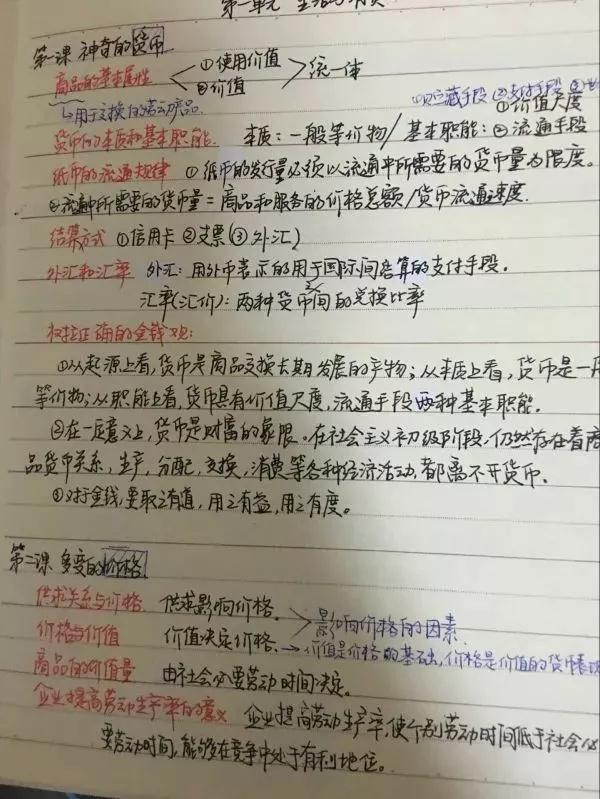 第一单元 生活与消费
第一课 神奇的货币
商品的基本属性 ①使用价值 ②价值 统一体
①贮藏手段 ②支付手段 ③世
↳用于交换的劳动产品 ①价值尺度
货币的本质和基本职能. 本质:一般等价物/基本职能:②流通手段
纸币的流通规律 ①纸币的发行量必须以流通中所需要的货币量为限度。
②流通中所需要的货币量=商品和服务的价格总额/货币流通速度.
结算方式 ①信用卡 ②支票(③外汇)
外汇和汇率 外汇:用外币表示的用于国际间结算的支付手段。
汇率(汇价):两种货币之间的兑换比率
树立正确的金钱观:
①从起源上看,货币是商品交换长期发展的产物;从本质上看,货币是一般
等价物;从职能上看,货币具有价值尺度,流通手段两种基本职能.
②在一定意义上,货币是财富的象征。在社会主义初级阶段,仍然存在着商
品货币关系,生产,分配,交换,消费等各种经济活动,都离不开货币.
③对于金钱,要取之有道,用之有益,用之有度。
第二课 多变的价格
供求关系与价格 供求影响价格. 影响价格的因素
价格与价值 价值决定价格. →价值是价格的基础,价格是价值的货币表现
商品的价值量 由社会必要劳动时间决定。
企业提高劳动生产率的意义 企业提高劳动生产率,使个别劳动时间低于社会必
要劳动时间,能够在竞争中处于有利地位。